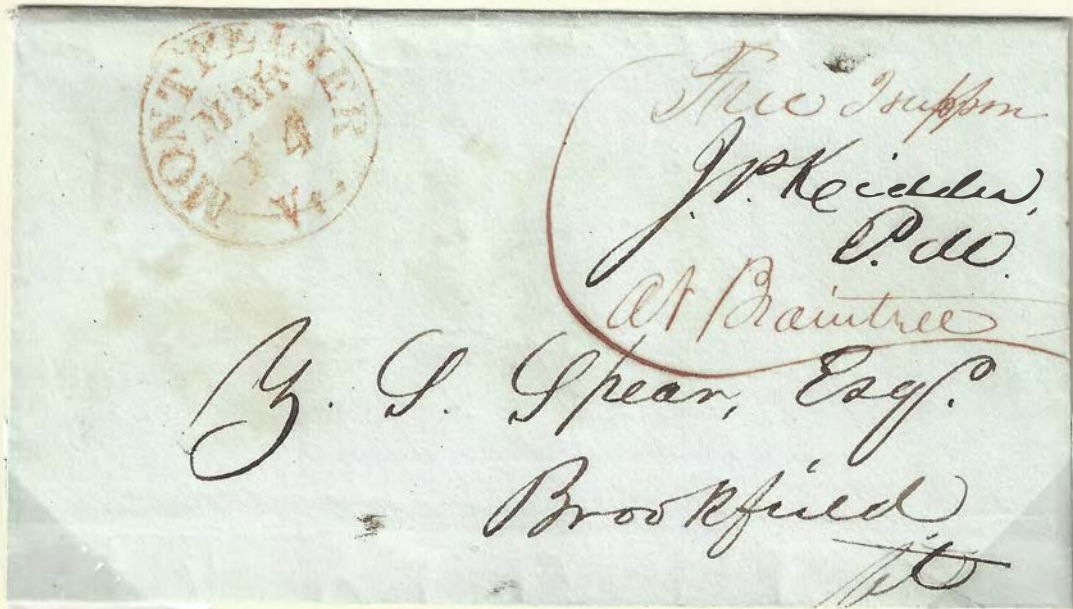 MONTPELIER Vt.
MAR
14
Free I suppose
J. P. Kidder,
P. M.
at Braintree
Z. S. Spear, Esq.
Brookfield
Vt